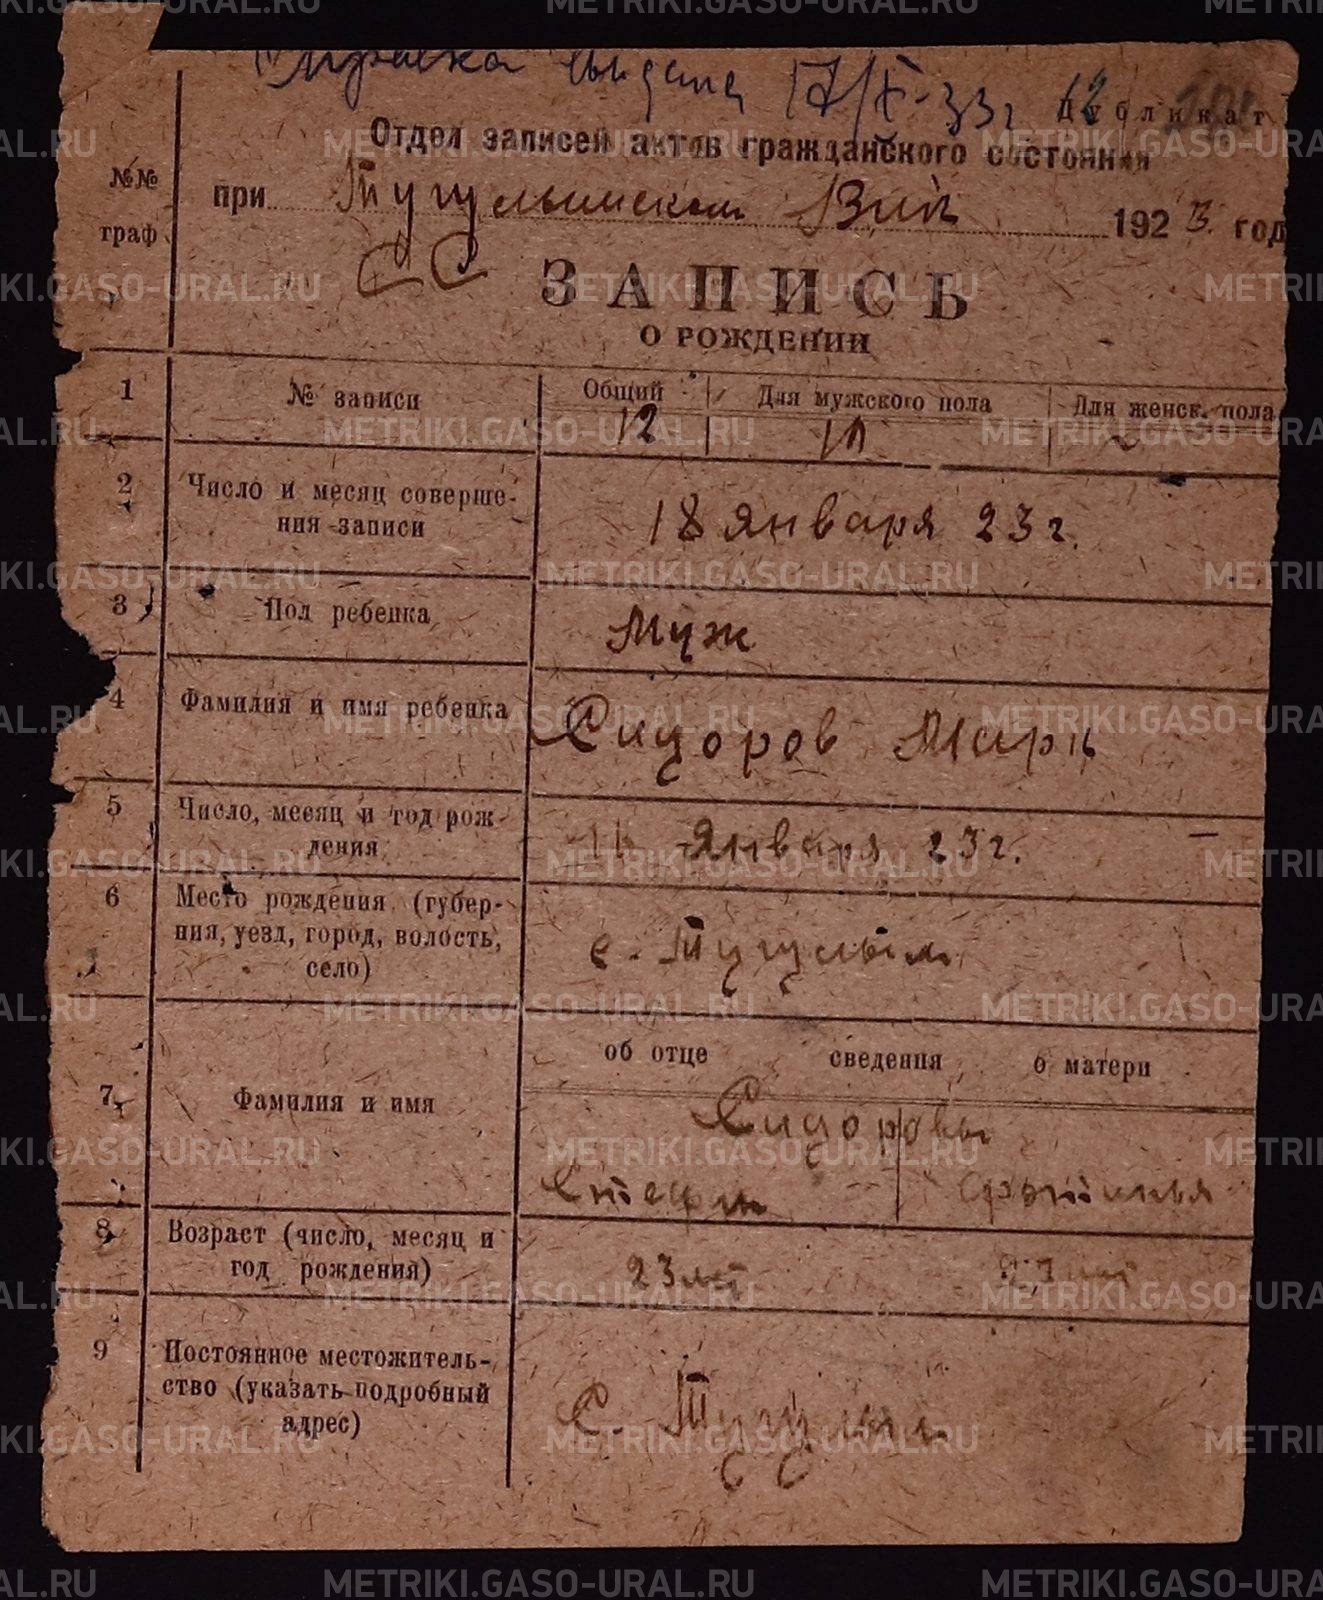 Справка выдана 17/X-33г 12
Дубликат
Отдел записей актов гражданского состояния
№№ граф
при Тугулымском Вик 1923 год
ЗАПИСЬ
О РОЖДЕНИИ
1 № записи
Общий Для мужского пола Для женск. пола
12 10 ~
2 Число и месяц соверше-
ния записи
18 января 23 г.
3 Пол ребенка
Муж
4 Фамилия и имя ребенка
Сидоров Марк
5 Число, месяц и год рож-
дения
11 января 23 г. –
6 Место рождения (губер-
ния, уезд, город, волость,
село)
с. Тугулым
об отце сведения о матери
7 Фамилия и имя
Сидоровы
8 Возраст (число, месяц и
год рождения)
23 лет
9 Постоянное местожитель-
ство (указать подробный
адрес)
С. Тугулым
METRIKI.GASO-URAL.RU